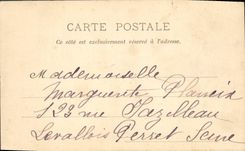 CARTE POSTALE
Ce côté est exclusivement réservé à l'adresse.
Mademoiselle
Marguerite Planeix
123 rue
Levallois Perret Seine